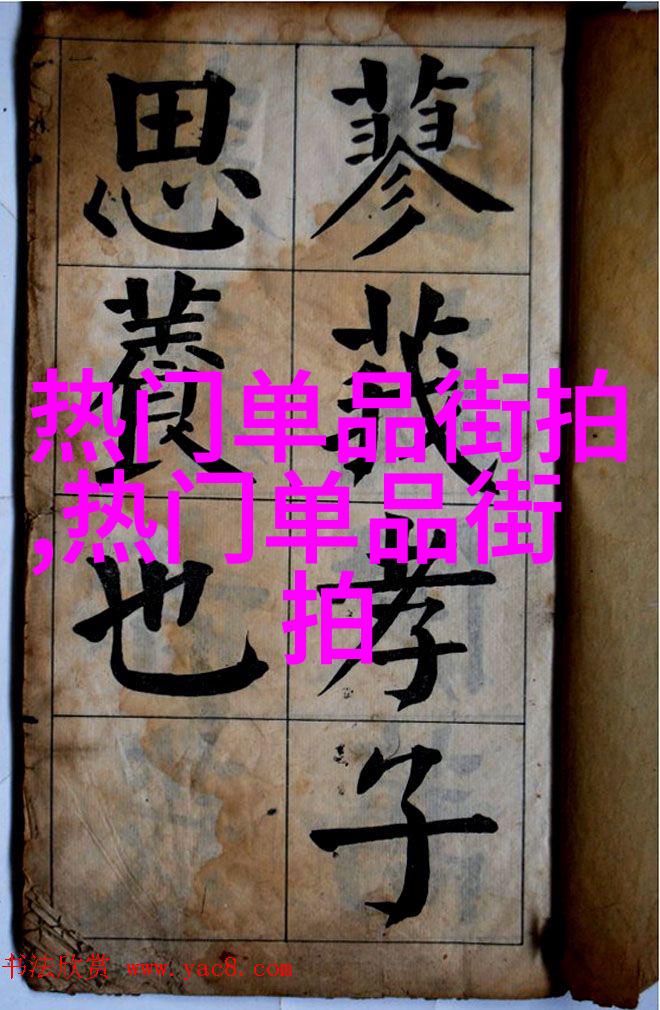 蓼莪孝子
思養也
热门单品街拍
,热门单品街
拍
书法欣赏 www.yac8.com